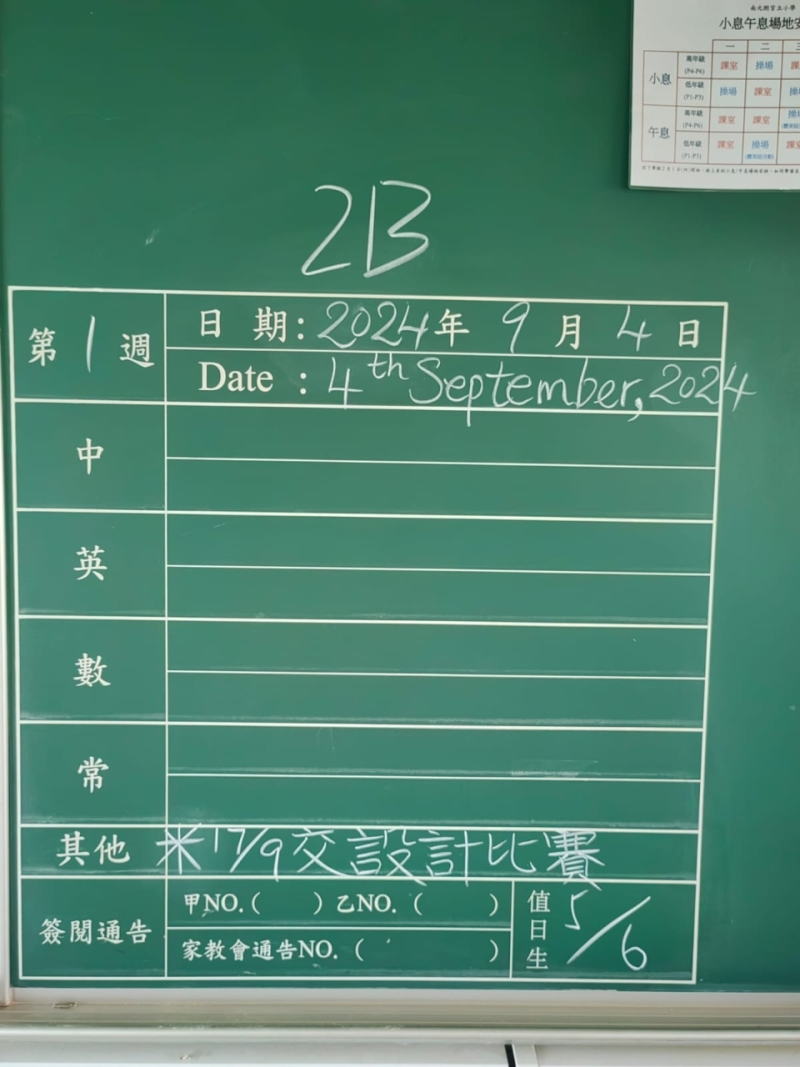 小息午息場地安
一 二 三
小息
高年級
(P4-P6)
課室 操場 課
低年級
(P1-P3)
操場 課室 操場
午息
高年級
(P4-P6)
課室 課室 操場
低年級
(P1-P3)
課室 操場 課室
2B
第1週
日 期: 2024年 9 月 4 日
Date : 4th September, 2024
中
英
數
常
其他 ※17/9交設計比賽
簽閱通告
甲NO.( ) 乙NO. ( )
家教會通告NO. ( )
值日生 5/6